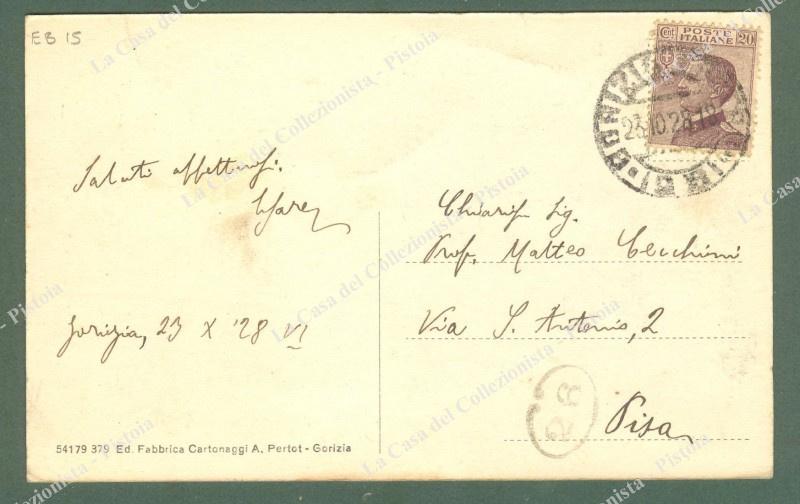 EB 15
Cent POSTE ITALIANE 20
23.10.28.19
Saluti affettuosi.
Gorizia, 23 X '28 VI
Chiariss. Sig.
Prof. Matteo Cecchini
Via S. Antonio, 2
Pisa
28
54179 379 Ed. Fabbrica Cartonaggi A. Pertot - Gorizia
La Casa del Collezionista - Pistoia